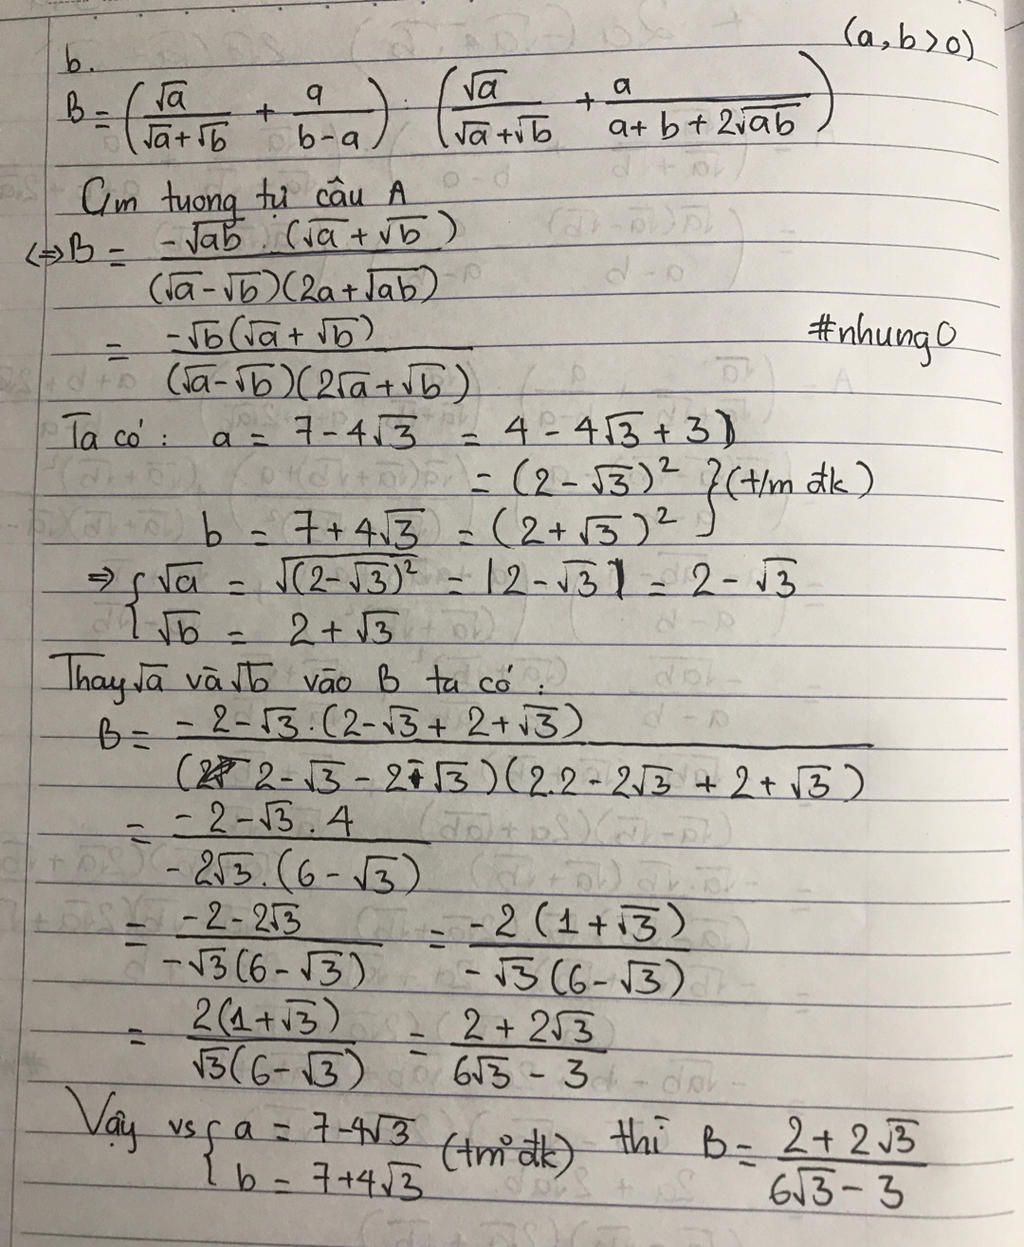 (a, b > 0)
b.
B = (√a/(√a+√b) + a/(b-a)) : (√a/(√a+√b) + a/(a+b+2√ab))
Cm tuong tự câu A
<=> B = -√ab . (√a + √b) / (√a-√b)(2a+√ab)
= -√b(√a + √b) / (√a-√b)(2√a+√b)
#nhung0
Ta có: a = 7-4√3 = 4-4√3+3)
= (2-√3)² } (t/m đk)
b = 7+4√3 = (2+√3)²
=> { √a = √(2-√3)² = |2-√3| = 2-√3
√b = 2+√3
Thay √a và √b vào B ta có:
B = -2-√3.(2-√3+2+√3) / (2-√3-2-√3)(2.2-2√3+2+√3)
= -2-√3.4 / -2√3.(6-√3)
= -2-2√3 / -√3(6-√3) = -2(1+√3) / -√3(6-√3)
= 2(1+√3) / √3(6-√3) = 2+2√3 / 6√3-3
Vậy vs { a = 7-4√3 (tm đk) thì B = 2+2√3 / 6√3-3
b = 7+4√3